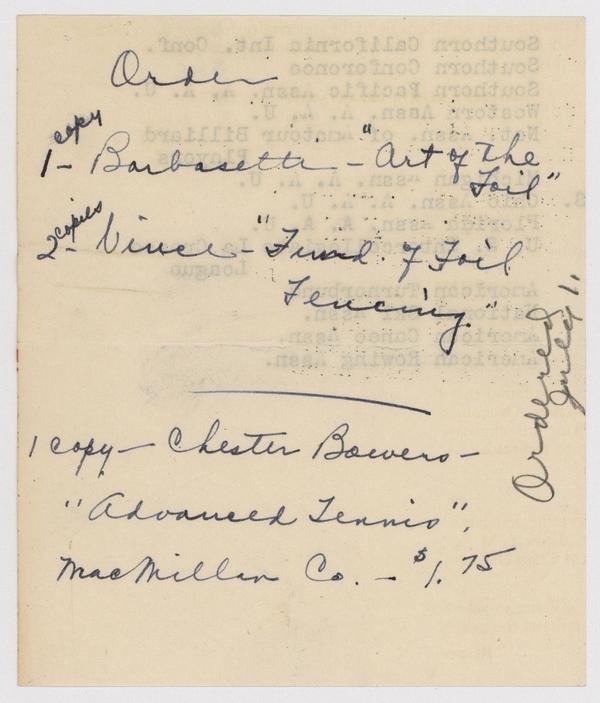 Order
1 copy - Barbasetti - "Art of The
Foil"
2 copies - Vince - "Fund. of Foil
Fencing."
Ordered
July 1.
1 copy - Chester Bowers -
"Advanced Tennis",
MacMillan Co. - $1.75
Southern California Int. Conf.
Southern Conference
Southern Pacific Assn. A. A. U.
Western Assn. A. A. U.
Nat. Assn. of Amateur Billiard
Players
Michigan Assn. A. A. U.
Ohio Assn. A. A. U.
Florida Assn. A. A. U.
League
American Turnerbund
American Canoe Assn.
American Rowing Assn.